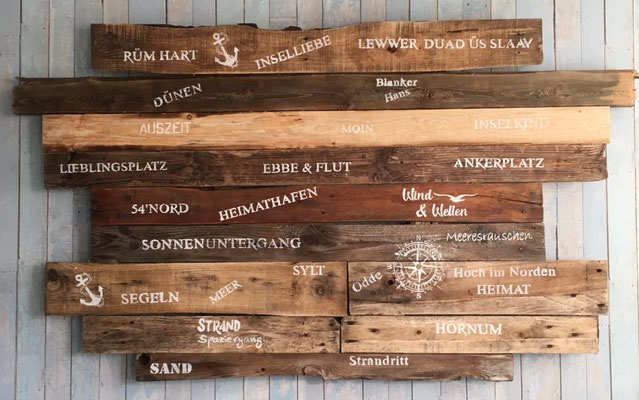 RÜM HART
INSELLIEBE
LEWWER DUAD ÜS SLAAV
DÜNEN
Blanker
Hans
AUSZEIT
MOIN
INSELKIND
LIEBLINGSPLATZ
EBBE & FLUT
ANKERPLATZ
54°NORD
HEIMATHAFEN
Wind
& Wellen
SONNENUNTERGANG
Meeresrauschen
SEGELN
MEER
SYLT
Odde
Hoch im Norden
HEIMAT
STRAND
Spaziergang
HÖRNUM
SAND
Strandritt